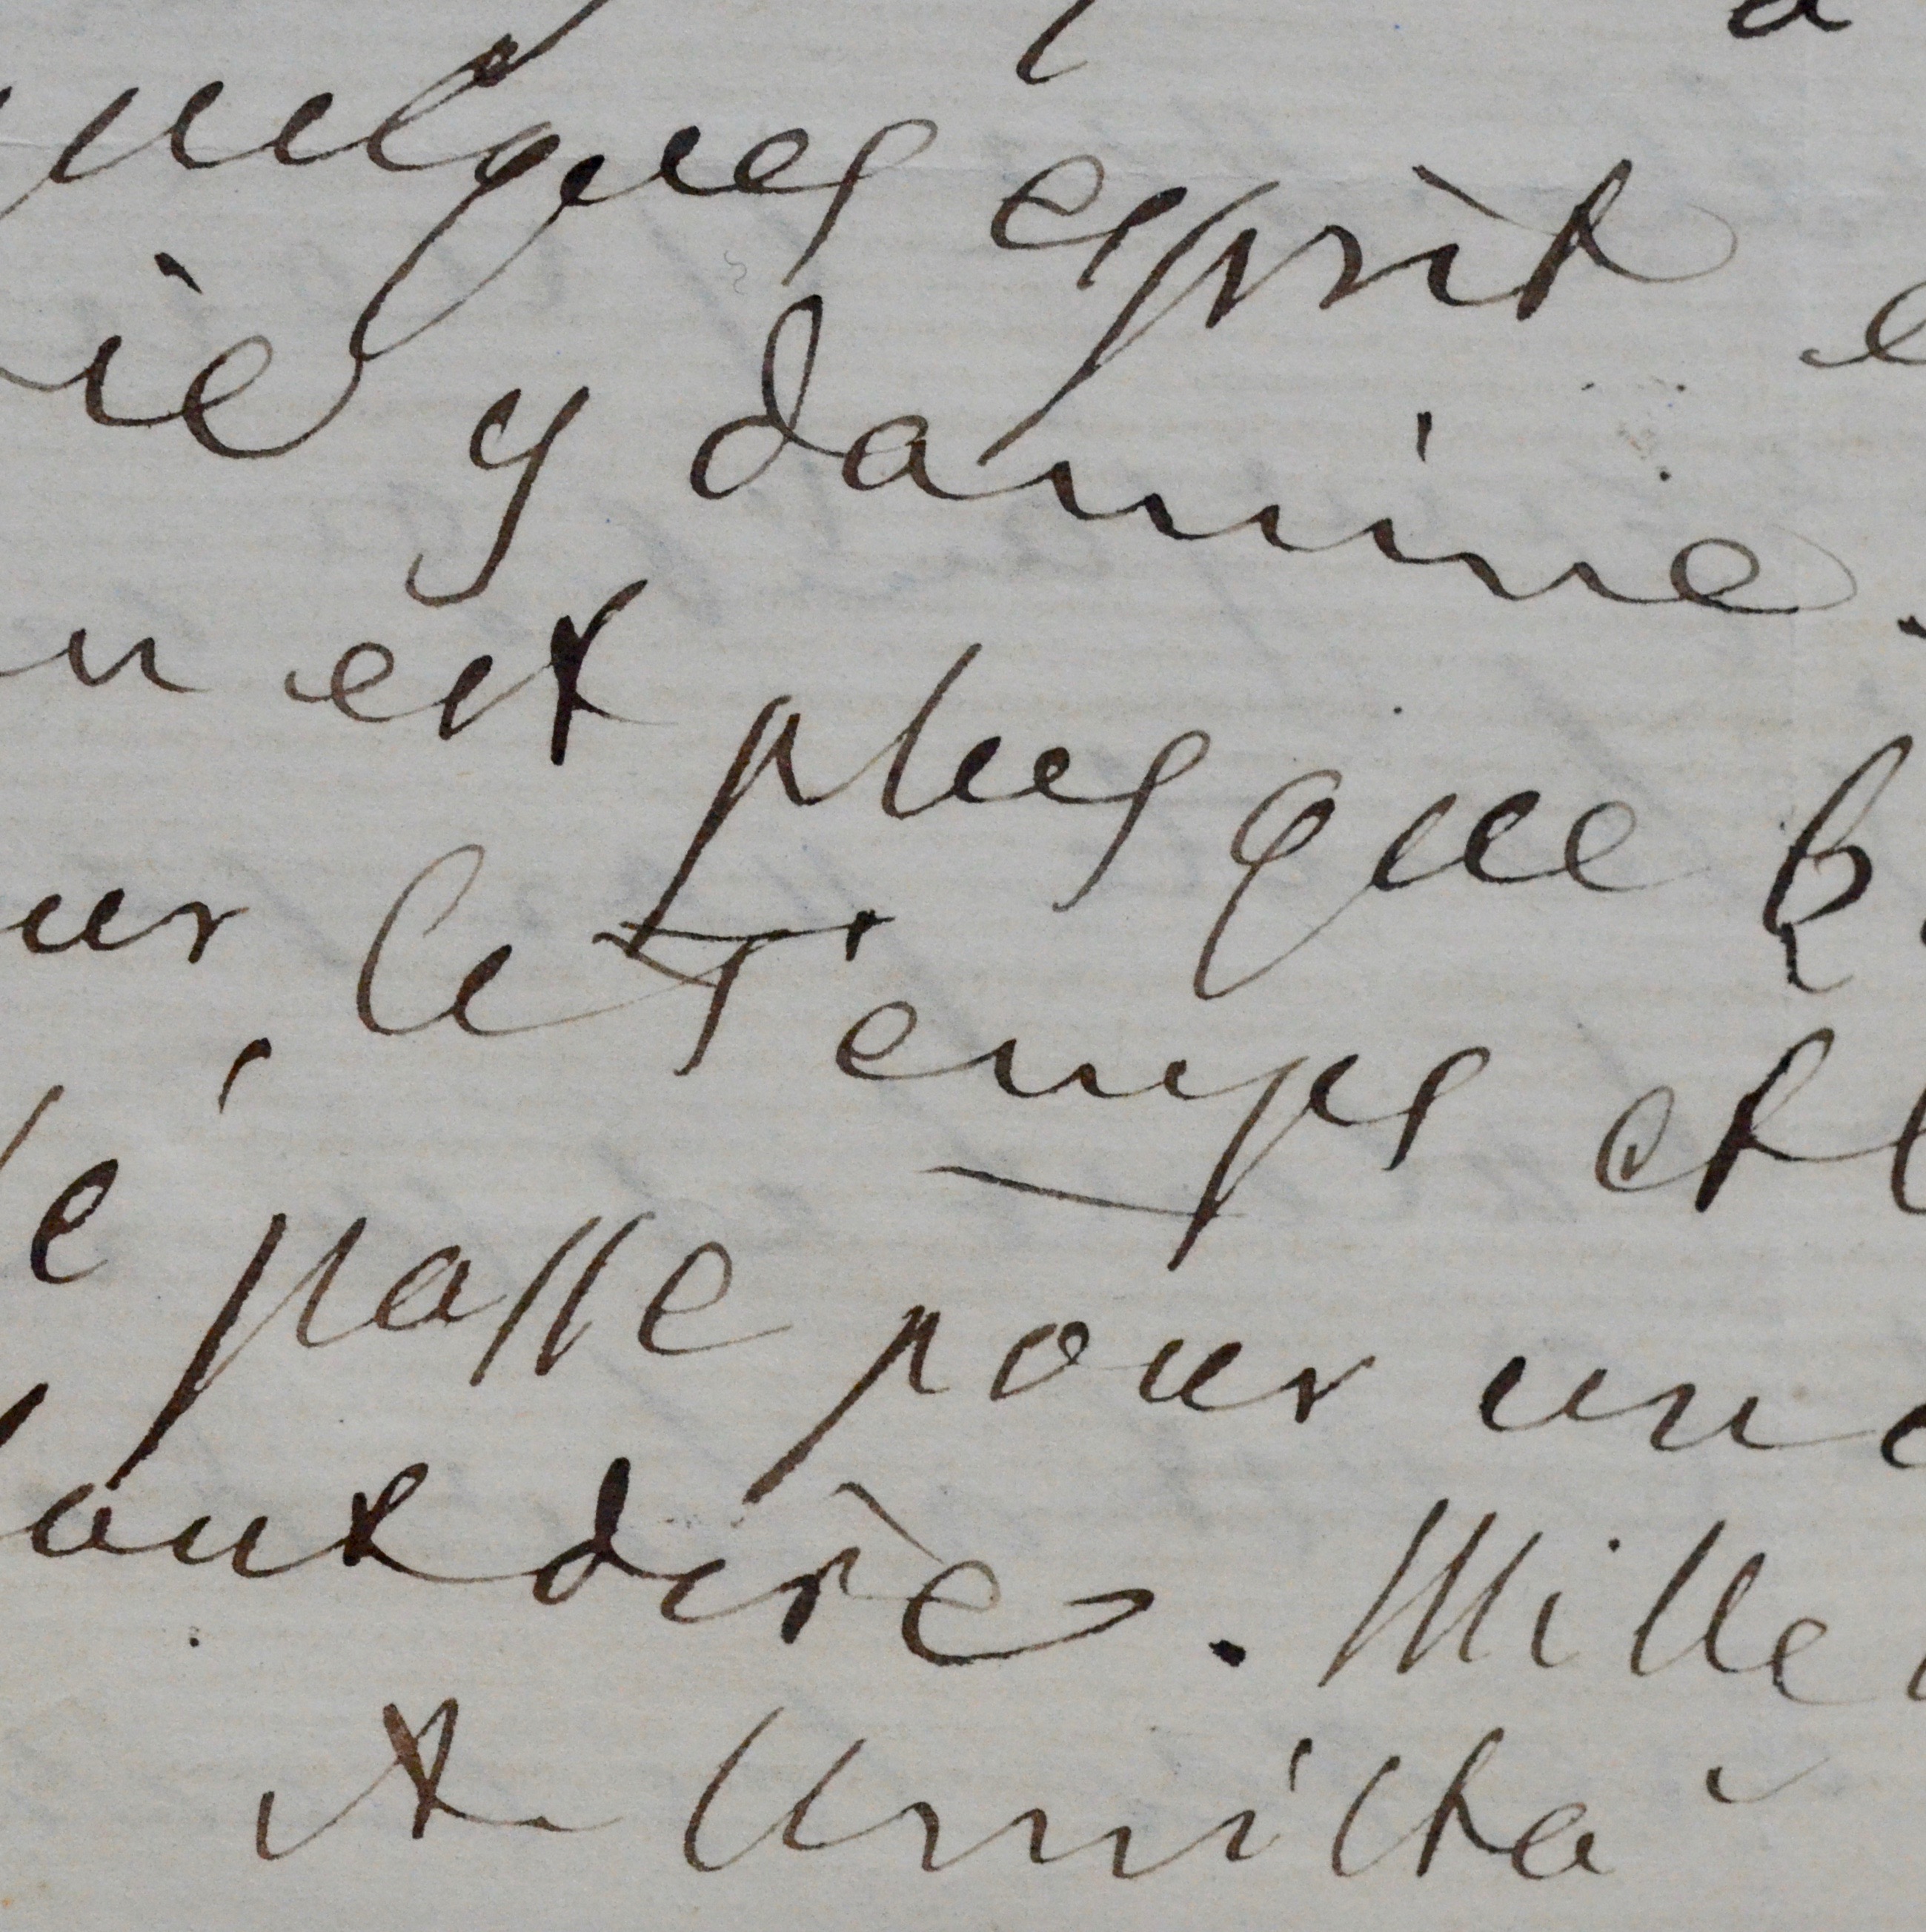 quelques esprit e
ie y domine.
n est plus que
ur, le Temps et l
é passe pour un
dire. Mille